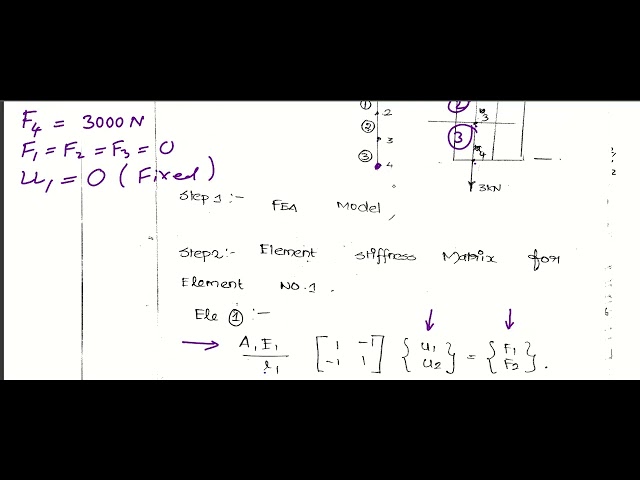 F4 = 3000 N
F1 = F2 = F3 = 0
u1 = 0 (Fixed)
①
2
②
3
③
4
②
3
③
4
3kN
Step 1 :- FEA Model,
Step 2:- Element stiffness Matrix for
Element NO. 1.
Ele ① :-
A1 E1 / l1 [1 -1 -1 1] {u1 u2} = {F1 F2}.